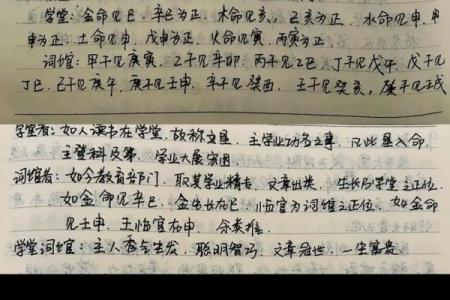 学堂:金命见巳,辛巳为正,木命见亥,己亥为正,水命见申,甲
申为正,土命见申,戊申为正,火命见寅,丙寅为正
词馆:甲干见庚寅,乙干见辛卯,丙干见乙巳,丁干见戊午,戊干见
丁巳,己干见庚午,庚干见壬申,辛干见癸酉,壬干见癸亥,癸干见壬戌
学堂者:如人读书在学堂,故称文星,主学业功名之事,凡此星入命,
主登科及第,学业大展宏图
词馆者:如今教育部门,取其学业精专,文章出类,生长乃学堂之正位,
如金命见辛巳,金生长在巳,临官为词馆之正位,如金命
见壬申,壬临官在申,余类推
学堂词馆:主人奋生发,聪明智巧,文章冠世,一生富贵